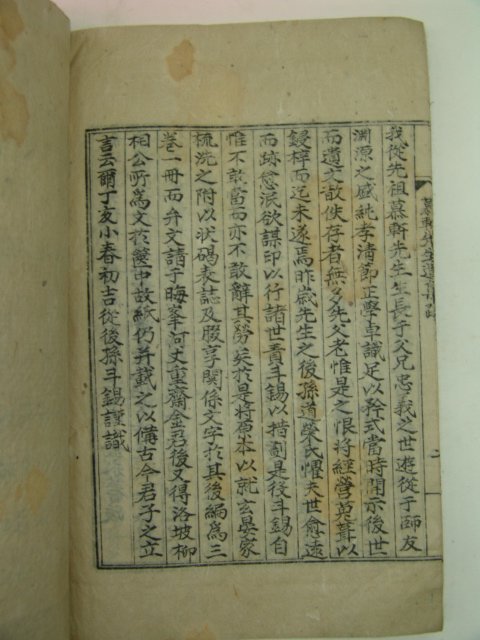 我從先祖慕軒先生生長于父兄忠義之世遊從于師友
淵源之盛純孝清節正學卓識足以矜式當時開示後世
而遺文散佚存者無多先父老惟是之恨將經營蒐葺以
鋟梓而迄未遂焉昨歲先生之後孫道榮氏懼夫世愈遠
而跡愈泯欲謀印以行諸世責斗錫以措劃具後斗錫自
惟不敢當而亦不敢辭其勞矣於是將原本以就玄昊家
梳洗之附以狀碣表誌及腏享關係文字於其後編爲三
卷一冊而弁文請于晦峯河丈重齋金君後又得洛坡柳
相公所爲文於篋中故紙仍并載之以備古今君子之立
言云爾丁亥小春初吉從後孫斗錫謹識
慕軒先生遺集跋
二